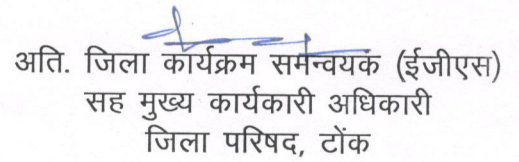 अति. जिला कार्यक्रम समन्वयक (ईजीएस)
सह मुख्य कार्यकारी अधिकारी
जिला परिषद, टोंक